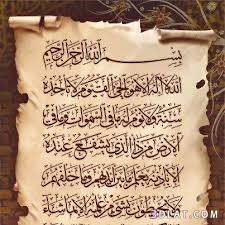 بِسْمِ اللَّهِ الرَّحْمَنِ الرَّحِيمِ
اللَّهُ لَا إِلَهَ إِلَّا هُوَ الْحَيُّ الْقَيُّومُ لَا تَأْخُذُهُ
سِنَةٌ وَلَا نَوْمٌ لَهُ مَا فِي السَّمَوَاتِ وَمَا فِي
الْأَرْضِ مَنْ ذَا الَّذِي يَشْفَعُ عِنْدَهُ
إِلَّا بِإِذْنِهِ يَعْلَمُ مَا بَيْنَ أَيْدِيهِمْ وَمَا خَلْفَهُمْ
وَلَا يُحِيطُونَ بِشَيْءٍ مِنْ عِلْمِهِ إِلَّا بِمَا شَاءَ
3DLAT.COM